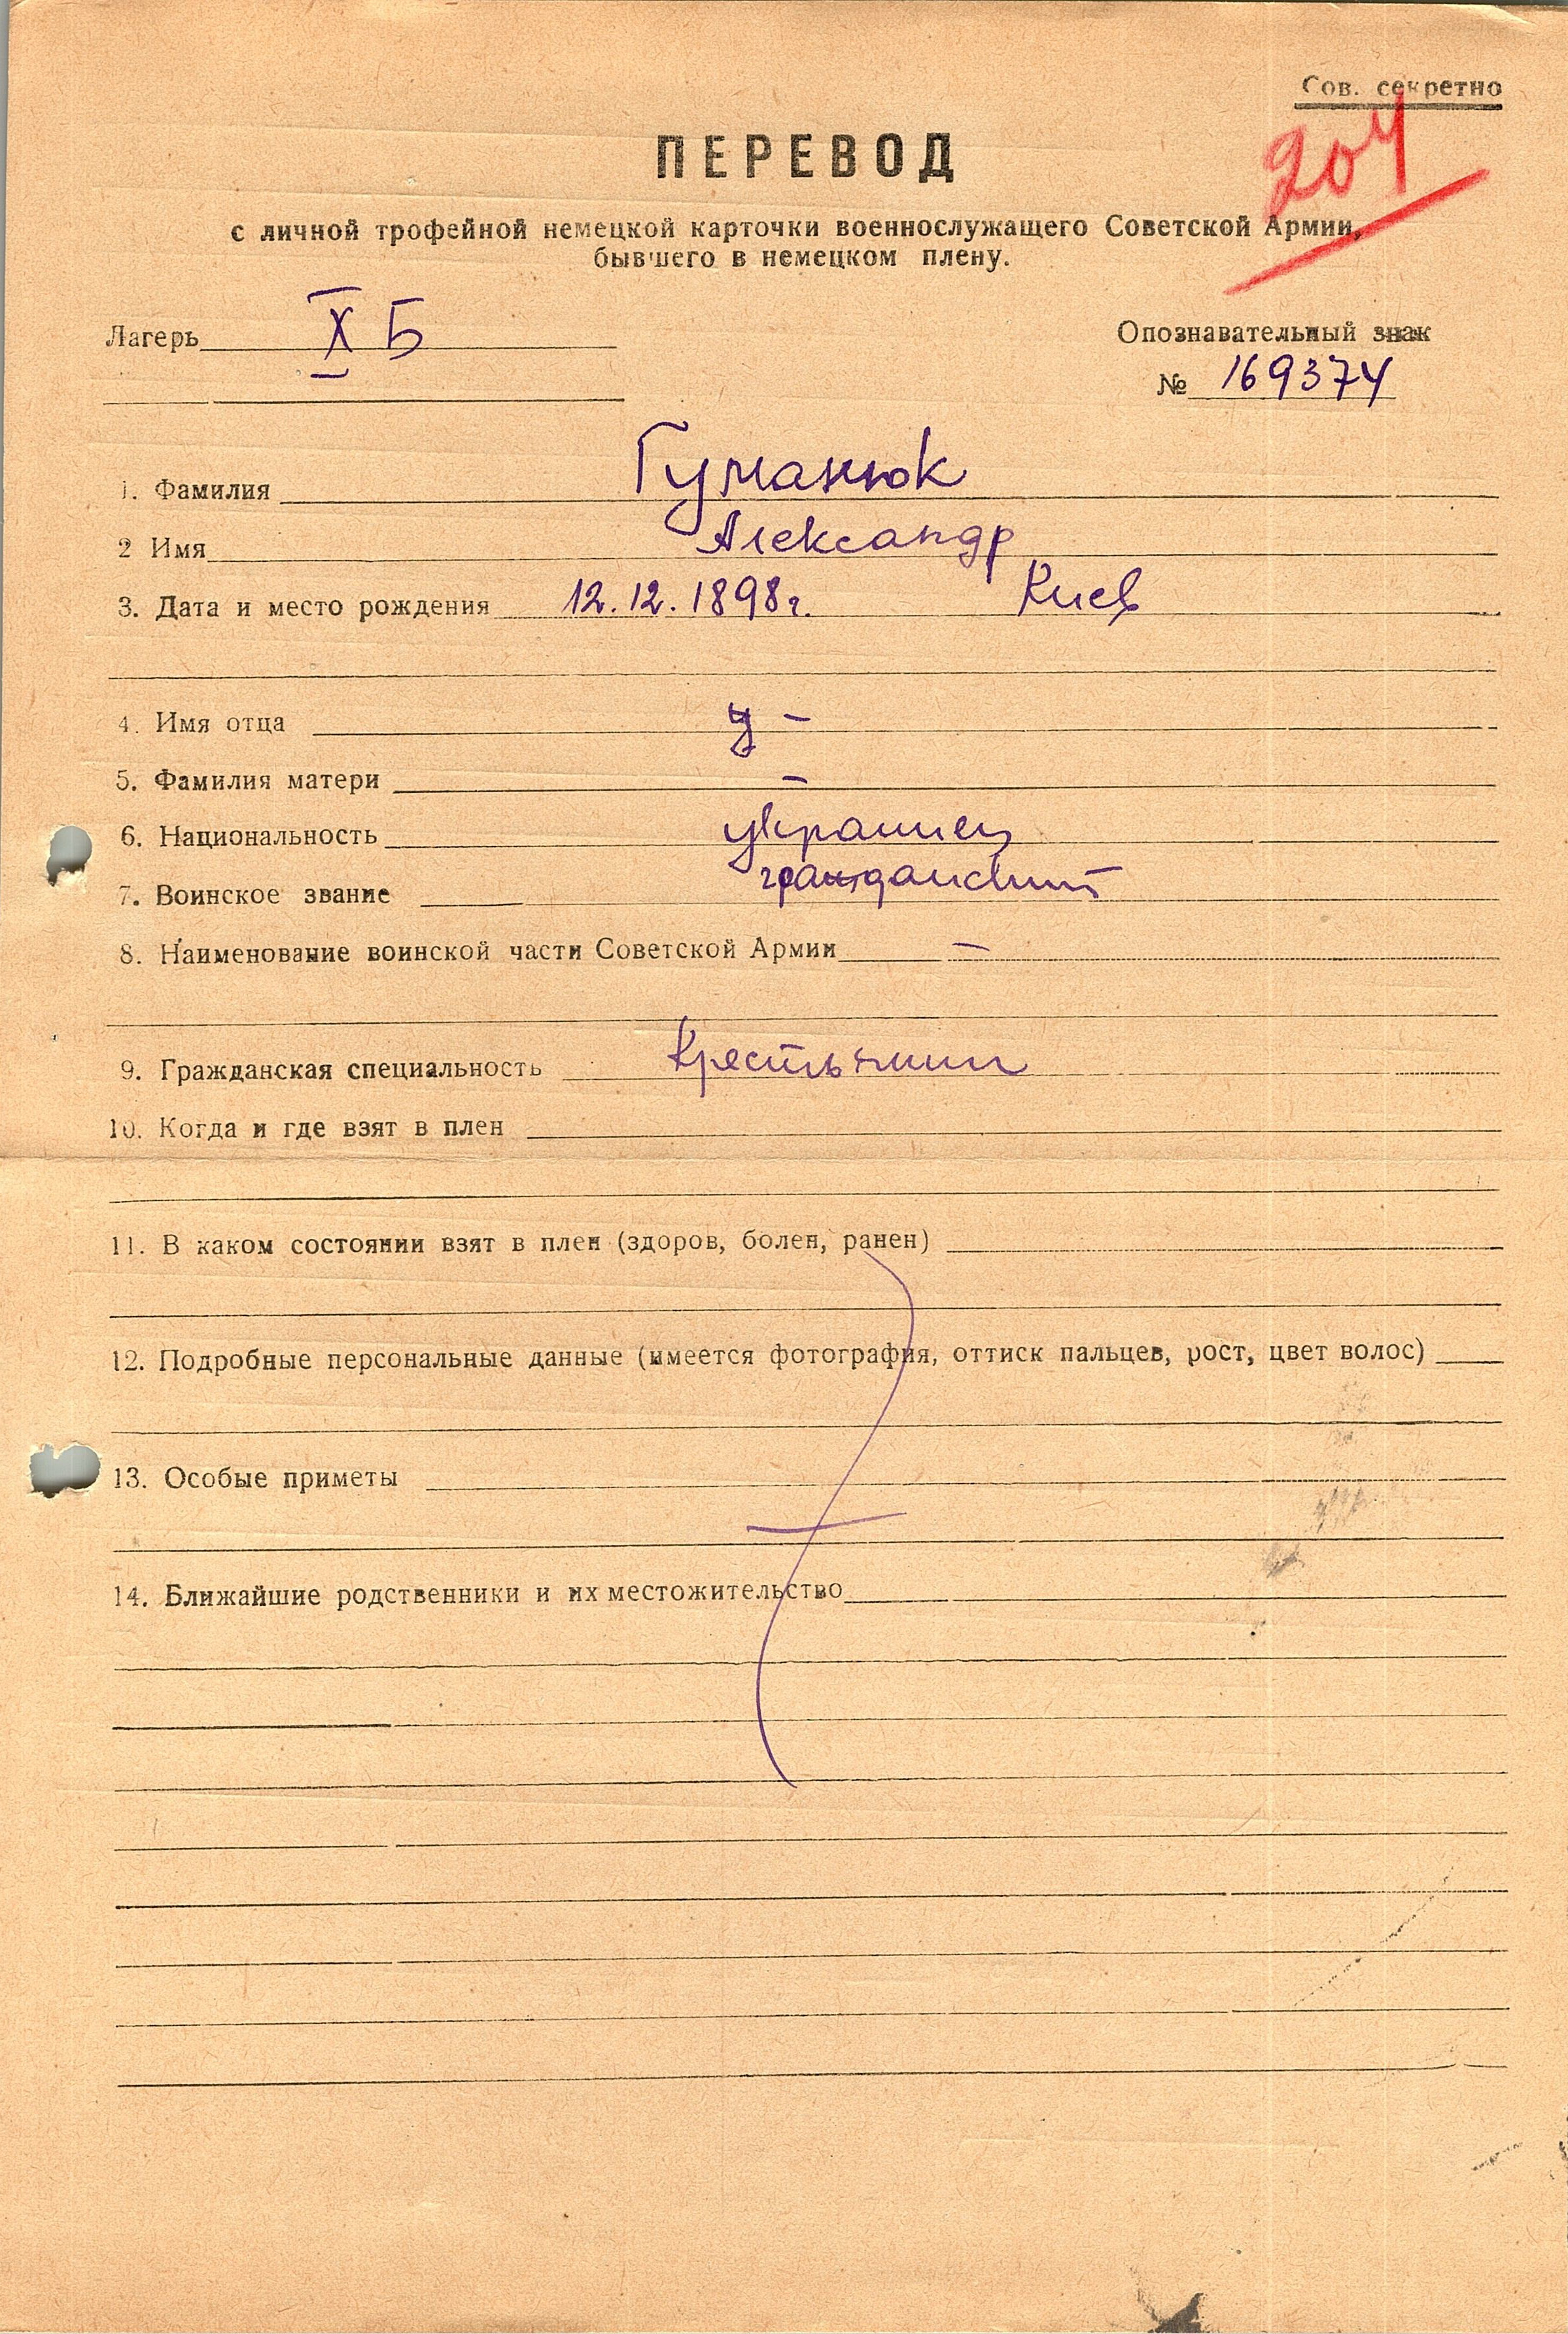 Сов. секретно
204
ПЕРЕВОД
с личной трофейной немецкой карточки военнослужащего Советской Армии,
бывшего в немецком плену.
Лагерь X Б
Опознавательный знак
№ 169374
1. Фамилия Гуманюк
2 Имя Александр
3. Дата и место рождения 12.12.1898г. Киев
4. Имя отца –
5. Фамилия матери –
6. Национальность украинец
7. Воинское звание гражданский
8. Наименование воинской части Советской Армии –
9. Гражданская специальность Крестьянин
10. Когда и где взят в плен
11. В каком состоянии взят в плен (здоров, болен, ранен)
12. Подробные персональные данные (имеется фотография, оттиск пальцев, рост, цвет волос)
13. Особые приметы
14. Ближайшие родственники и их местожительство